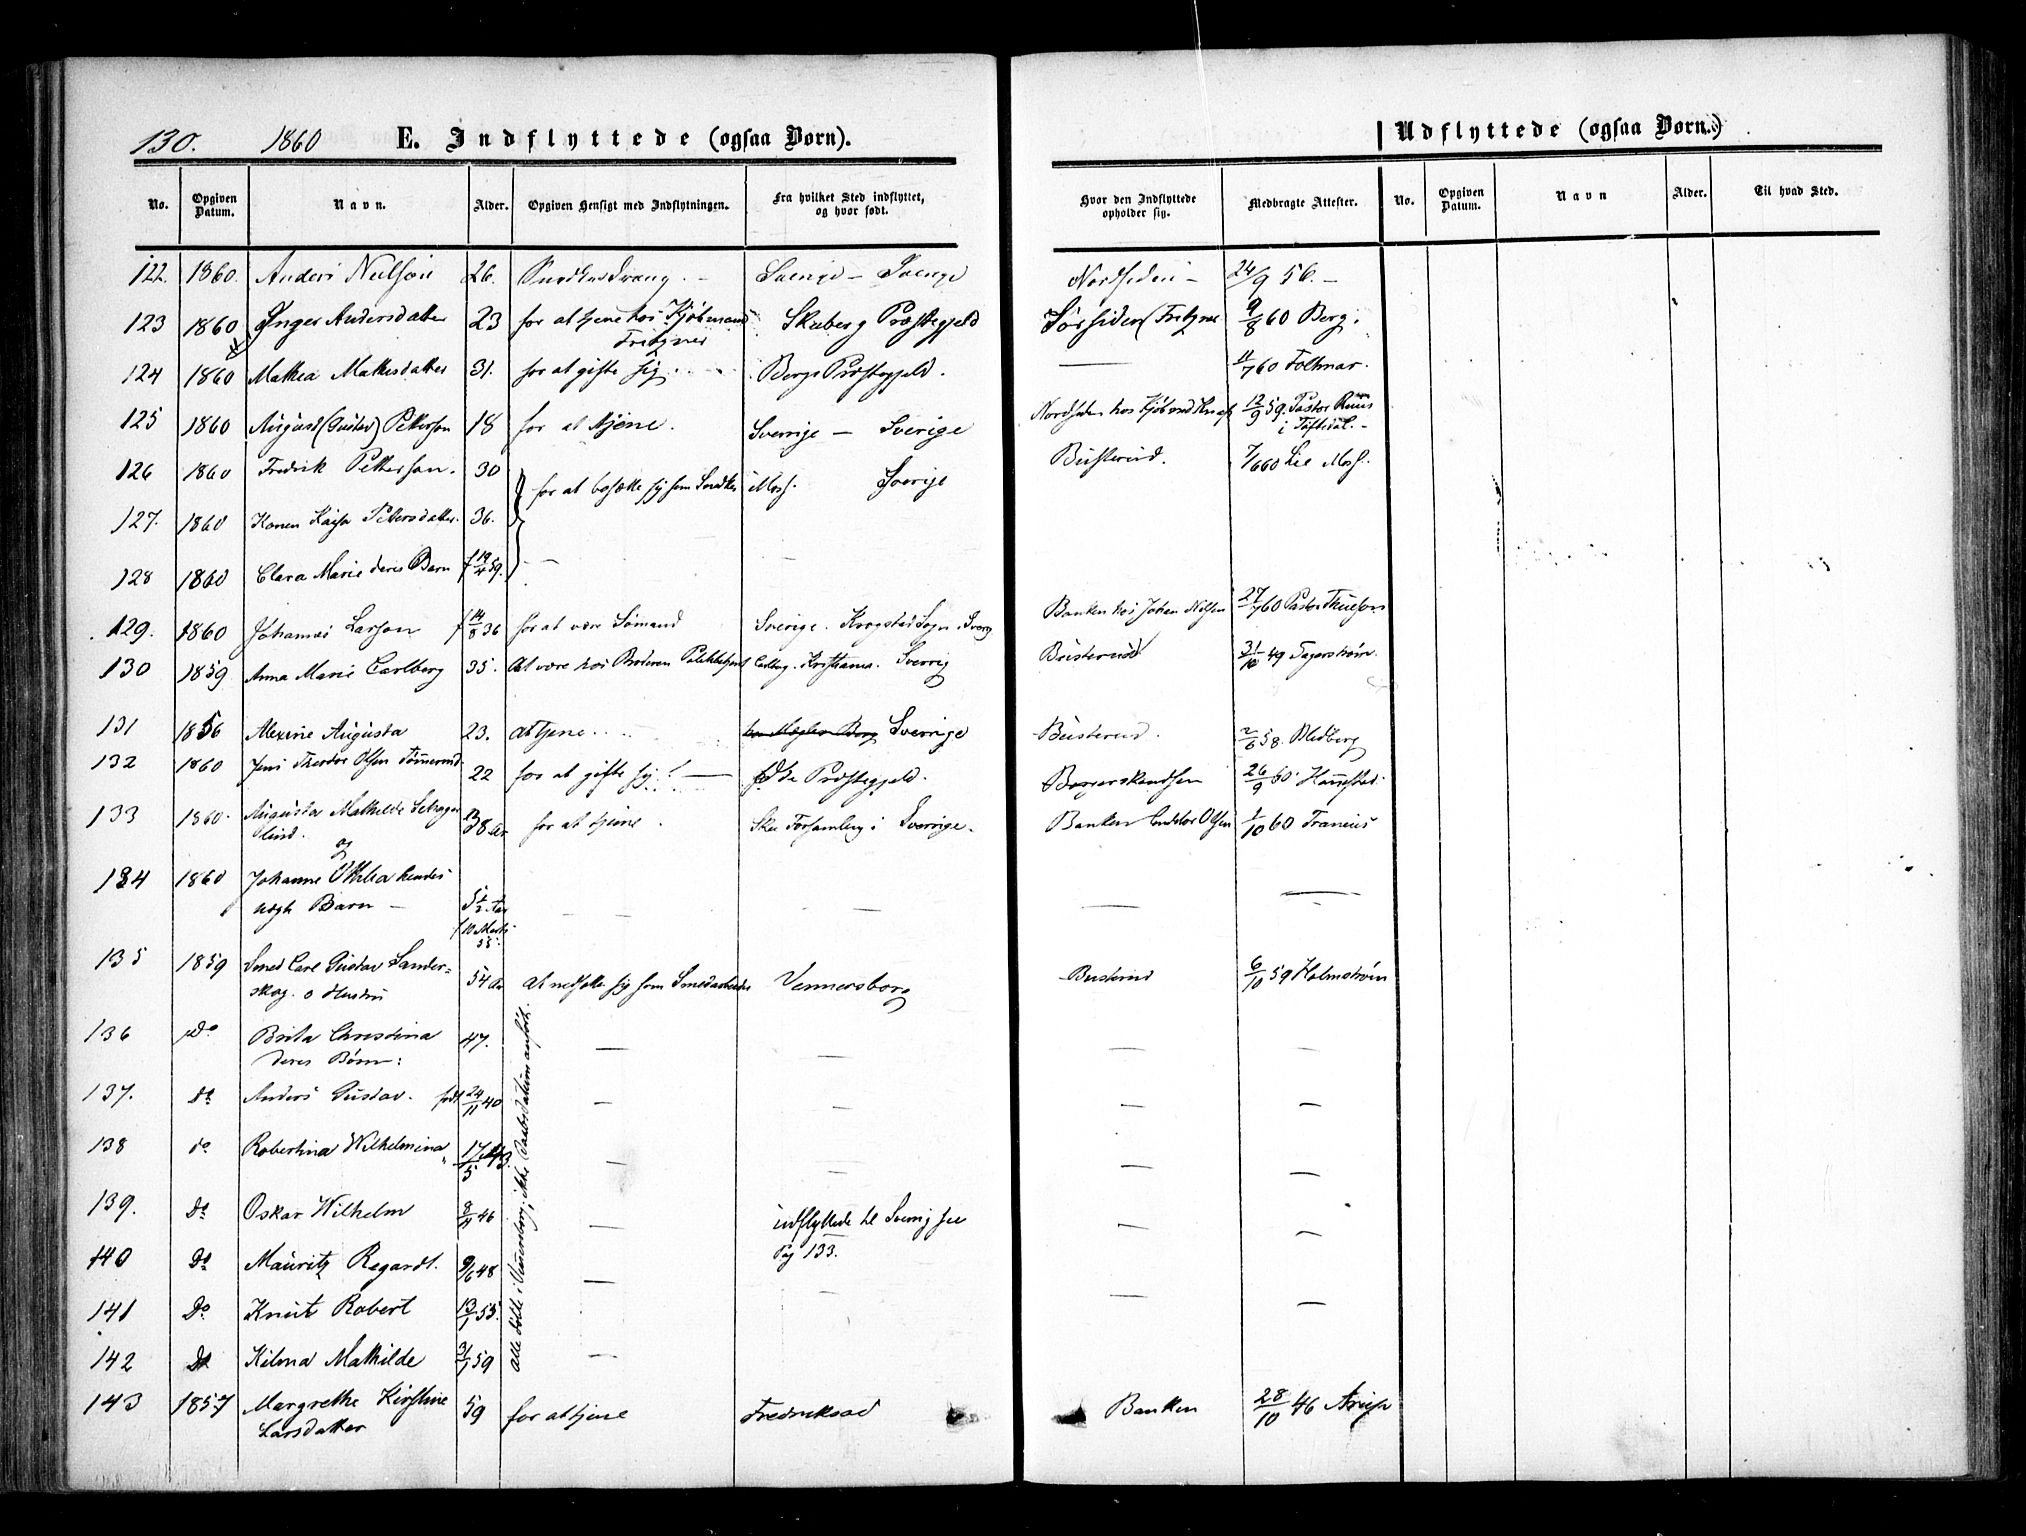 130. 1860 E. Indflyttede (ogsaa Børn).
Udflyttede (ogsaa Børn.)
No. Opgiven Datum. Navn. Alder. Opgiven Hensigt med Indflytningen. Fra hvilket Sted indflyttet, og hvor født. Hvor den Indflyttede opholder sig. Medbragte Attester. No. Opgiven Datum. Navn Alder. Til hvad Sted.
122. 1860. Anders Nielsen 26. Snedkerdreng. - Sverige - Sverige Nordsiden - 24/9 56. -
123 1860 Inger Andersdatter 23 for at tjene hos Kjøbmand Fritzner Skeberg Præstegjeld Sørsiden (Fritzner 9/8 60 Berg.
124 1860 Mathea Mathisdatter 31. for at gifte sig. Bergs Præstegjeld. — 11/7 60 Foltmar.
125 1860 August (Gustav) Petterson 18 for at tjene. Sverrige - Sverige Nordsiden hos Kjøbmd 12/9 59. Pastor Ruus
i Töftedal. -
126 1860 Fredrik Petterson. 30 for at bosætte sig som Snedker i Moss. Sverige Busterud. 7/6 60 Lie Moss.
127. 1860 Konen Kaisa Petersdatter. 36.
128 1860 Clara Marie deres Barn f 19/4 59. —
129. 1860 Johannes Larson f 14/8 36 for at være Sømand Sverige. Krogstad Sogn. Sverig Banken hos Johan Nilsen 27/7 60 Pastor Thuesen
130 1859 Anna Marie Carlberg 35. At være hos Broderen Politibetjent Carlberg. Kristiania. Sverrig Busterud 31/10 49 Fagerström.
131 1856 Alexine Augusta 23. At tjene . . . Sverrige Busterud. 2/6 58. Bledberg
132 1860 Jens Theodor Olsen Tømmerud 22 for at gifte sig! — Idde Præstegjeld. 26/9 60 Hannestad.
133 1860. Augusta Mathilde Setragen
lind. 38 Aar for at tjene. Skee Forsamling i Sverrige. Banken Olsen 1/10 60 Francius
og
134 1860 Johanne Othilia hendes
uægte Barn - 5 1/2 Aar — — — —
f 10 Marts
55.
135 1859 Smed Carl Gustav Sander-
skog. o Hustru 54 Aar At nedsætte sig som Smedarbeider Vennersborg Busterud 6/10 59 Holmström
136 Do Brita Christina 47. — — — —
deres Børn:
137. Do Anders Gustav. født 24/11 40 — — — —
138 do Robertina Wilhelmina " 17/5 43. — — — —
139. Do Oskar Wilhelm 8/11 46 — udflyttede til Sverig see — —
Pag 133.
140 Do Mauritz Regardt. 9/6 48 —
141 Do Knut Robert 13/1 55. — — —
142 Do Hilma Mathilde 31/1 59 —
alle fødte i Vennersborg, ikke Daabsdatum anført.
143 1857 Margrethe Kirstine
Larsdatter 59 for at tjene Fredrikstad Banken 28/10 46 Arup